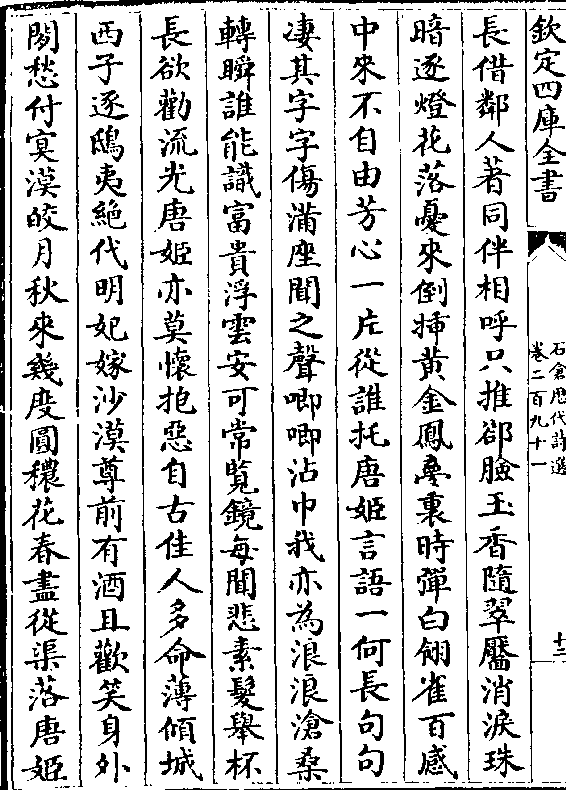 欽定四庫全書
石倉歷代詩選
卷二百九十一
十二
長借鄰人著同伴相呼只推郤臉玉香隨翠靨消淚珠
暗逐燈花落憂來倒揷黄金鳳夢裏時彈白翎雀百感
中來不自由芳心一片從誰托唐姬言語一何長句句
凄其字字傷滿座聞之聲唧唧沾巾我亦為浪浪滄桑
轉瞬誰能識富貴浮雲安可常覧鏡每聞悲素髮舉杯
長欲勸流光唐姬亦莫懷抱惡自古佳人多命薄傾城
西子逐鴟夷絶代明妃嫁沙漠尊前有酒且歡笑身外
閑愁付寞漠皎月秋來幾度圓穠花春盡從渠落唐姬